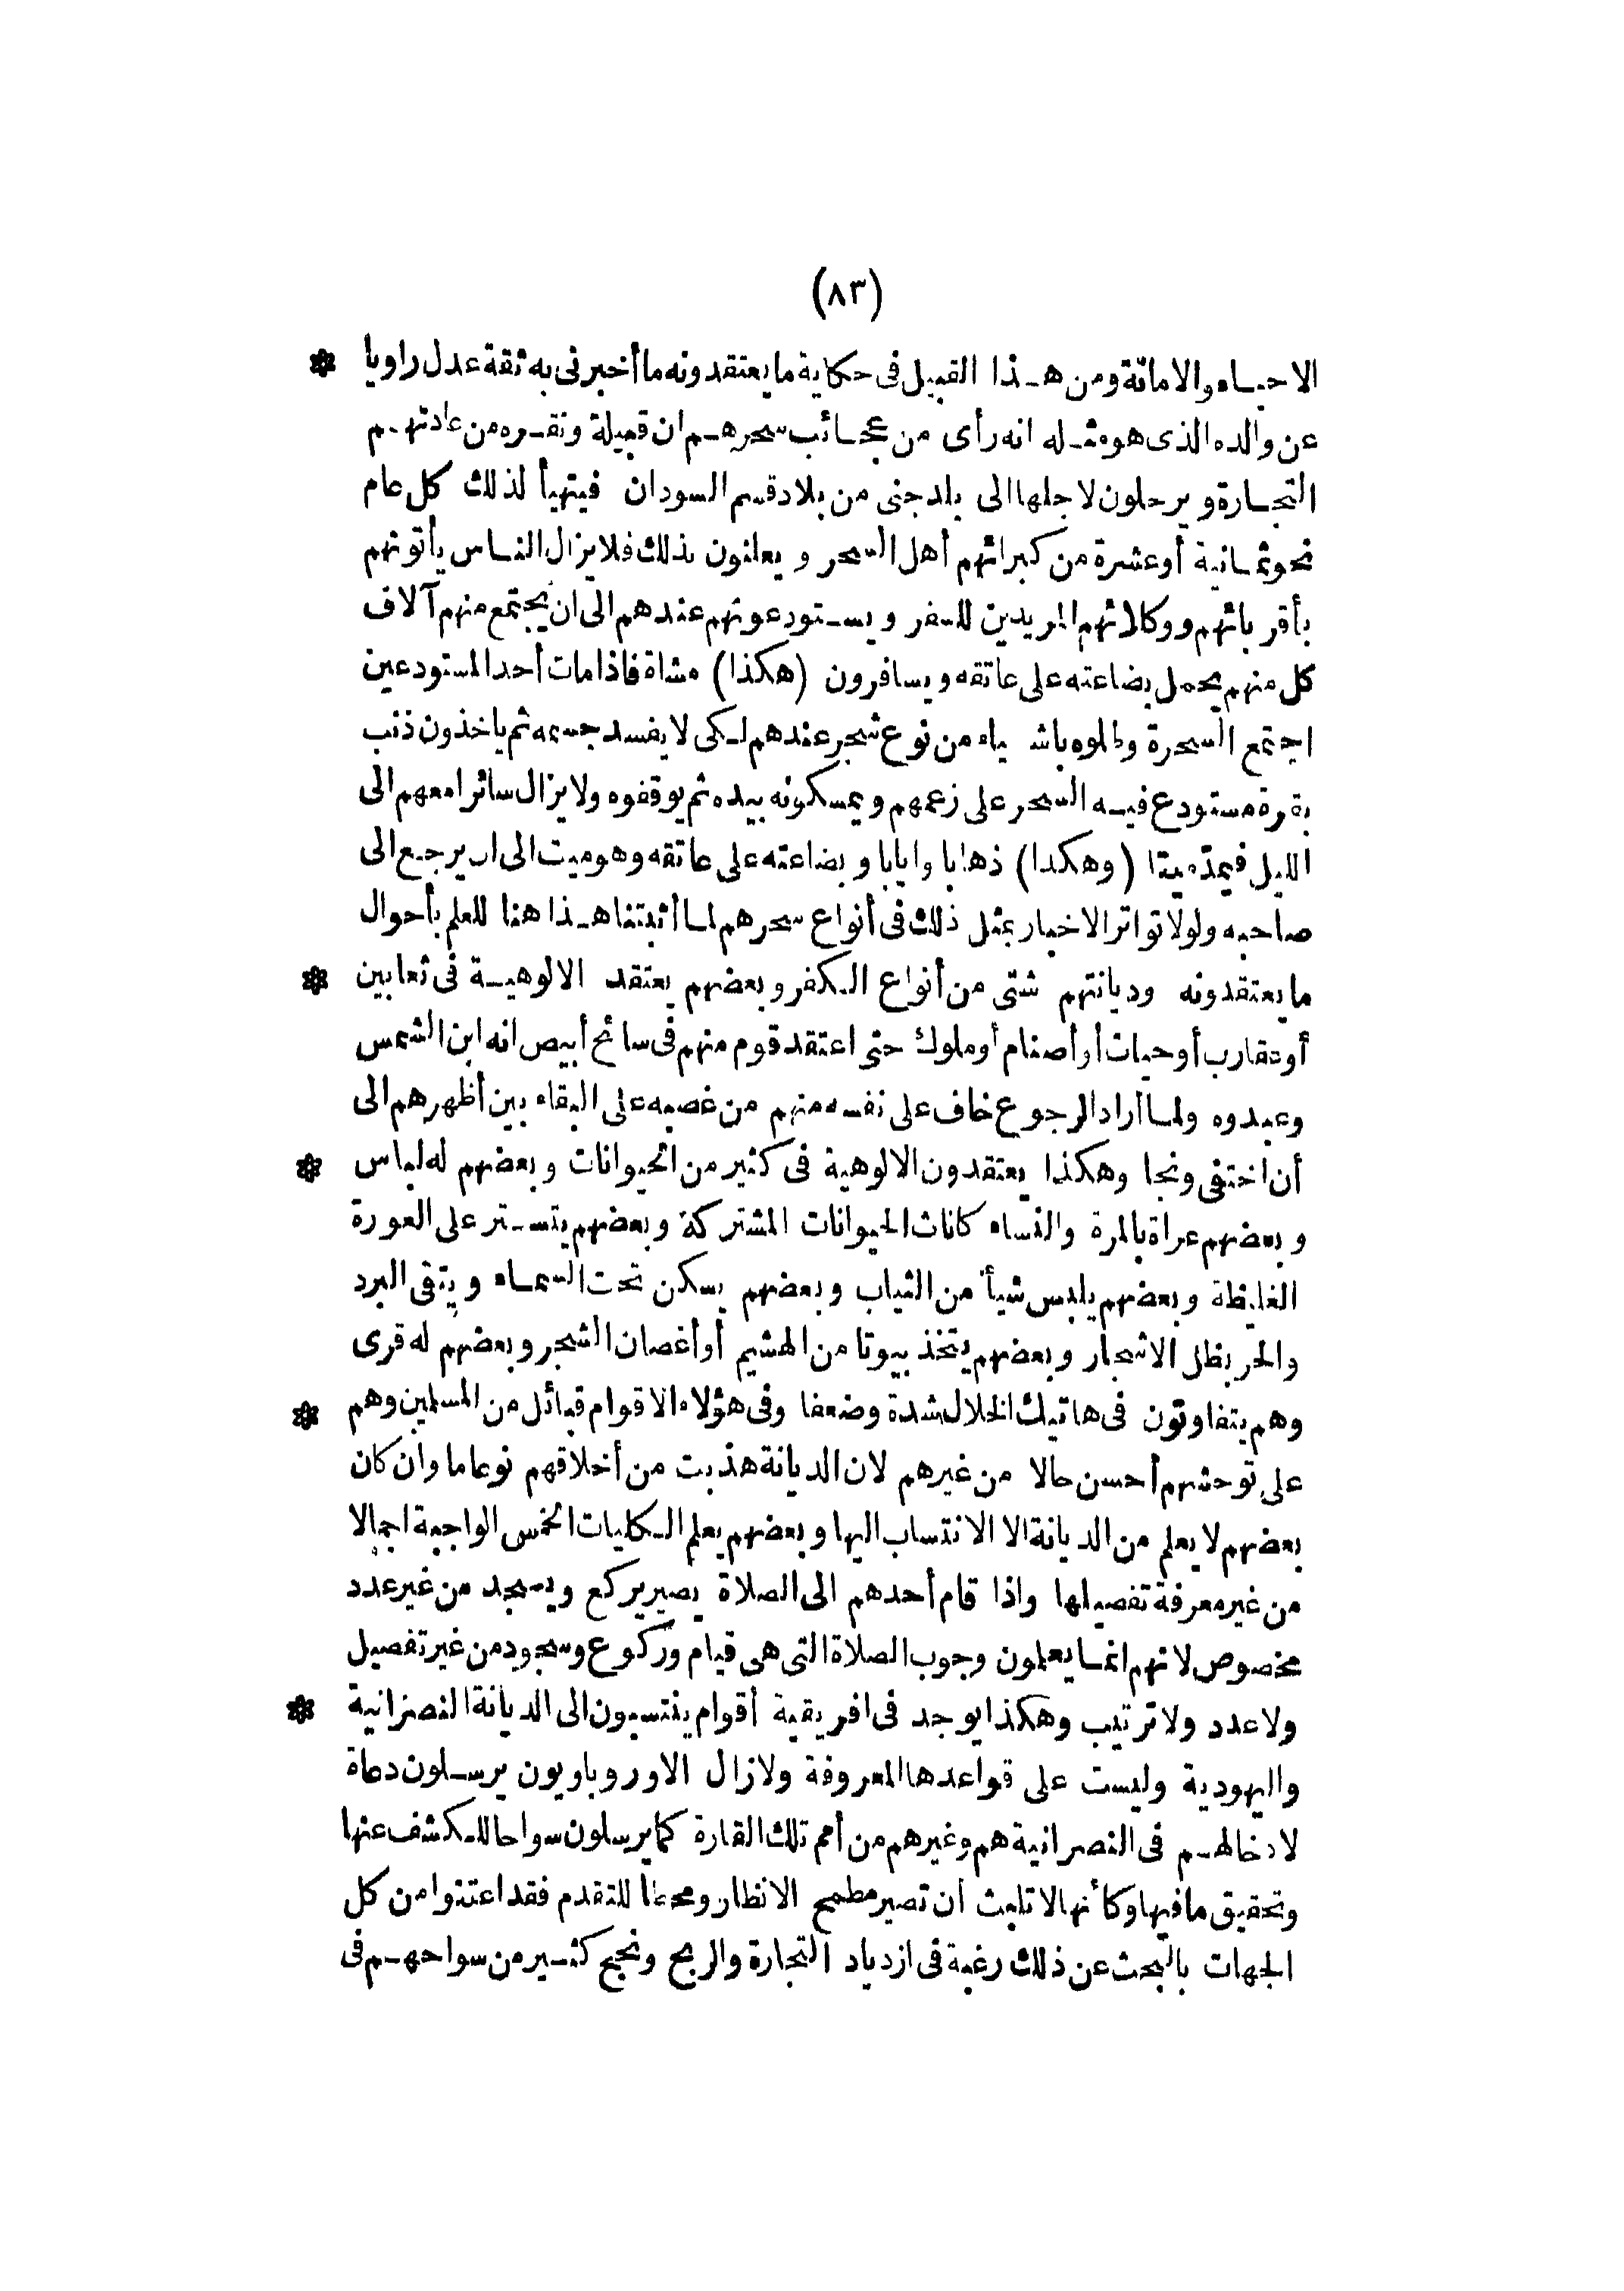 (٨٣)
الاحياء والاماتة ومن هذا القبيل فى حكاية ما يعتقدونه ما أخبرنى به ثقة عدل راويا *
عن والده الذى هو مثله انه رأى من عجائب سحرهم ان قبيلة ونقره من عادتهم
التجارة ويرحلون لاجلها الى بلد جنى من بلاد قسم السودان فيتهيأ لذلك كل عام
نحو ثمانية أو عشرة من كبرائهم أهل السحر ويعلنون بذلك فلا يزال الناس يأتونهم
بأقربائهم ووكلائهم المريدين للسفر ويستودعونهم عندهم الى ان يجتمع منهم آلاف
كل منهم يحمل بضاعته على عاتقه ويسافرون (هكذا) مشاة فاذا مات أحد المستودعين
اجتمع السحرة وطلوه باشياء من نوع شجر عندهم لكى لا يفسد جسمه ثم ياخذون ذنب
بقرة مستودع فيه السحر على زعمهم ويمسكونه بيده ثم يوقفوه ولا يزال سائرا معهم الى
الليل فيمدّ ميتا (وهكذا) ذهابا وايابا وبضاعته على عاتقه وهو ميت الى ان يرجع الى
صاحبه ولولا تواتر الاخبار بمثل ذلك فى أنواع سحرهم لما أثبتنا هذا هنا للعلم بأحوال
ما يعتقدونه وديانتهم شتى من أنواع الكفر وبعضهم يعتقد الالوهية فى ثعابين *
أو عقارب أو حيات أو أصنام أو ملوك حتى اعتقد قوم منهم فى سائح أبيض انه ابن الشمس
وعبدوه ولما أراد الرجوع خاف على نفسه منهم من غصبه على البقاء بين أظهرهم الى
أن اختفى ونجا وهكذا يعتقدون الالوهية فى كثير من الحيوانات وبعضهم له لباس *
وبعضهم عراة بالمرة والنساء كاناث الحيوانات المشتركة وبعضهم يتستر على العورة
الغليظة وبعضهم يلبس شيأ من الثياب وبعضهم يسكن تحت السماء ويتقى البرد
والحر بظل الاشجار وبعضهم يتخذ بيوتا من الهشيم أو أغصان الشجر وبعضهم له قرى
وهم يتفاوتون فى هاتيك الخلال شدة وضعفا وفى هؤلاء الاقوام قبائل من المسلمين وهم *
على توحشهم أحسن حالا من غيرهم لان الديانة هذبت من أخلاقهم نوعا ما وان كان
بعضهم لا يعلم من الديانة الا الانتساب اليها وبعضهم يعلم الكليات الخمس الواجبة اجمالا
من غير معرفة تفصيلها واذا قام أحدهم الى الصلاة يصير يركع ويسجد من غير عدد
مخصوص لانهم انما يعلمون وجوب الصلاة التى هى قيام وركوع وسجود من غير تفصيل
ولا عدد ولا ترتيب وهكذا يوجد فى افريقية أقوام ينتسبون الى الديانة النصرانية *
واليهودية وليست على قواعدها المعروفة ولا زال الاوروباويون يرسلون دعاة
لادخالهم فى النصرانية هم وغيرهم من أمم تلك القارة كما يرسلون سواحا للكشف عنها
وتحقيق ما فيها وكأنها لا تلبث أن تصير مطمح الانظار ومحطا للتقدم فقد اعتنوا من كل
الجهات بالبحث عن ذلك رغبة فى ازدياد التجارة والربح ونجح كثير من سواحهم فى